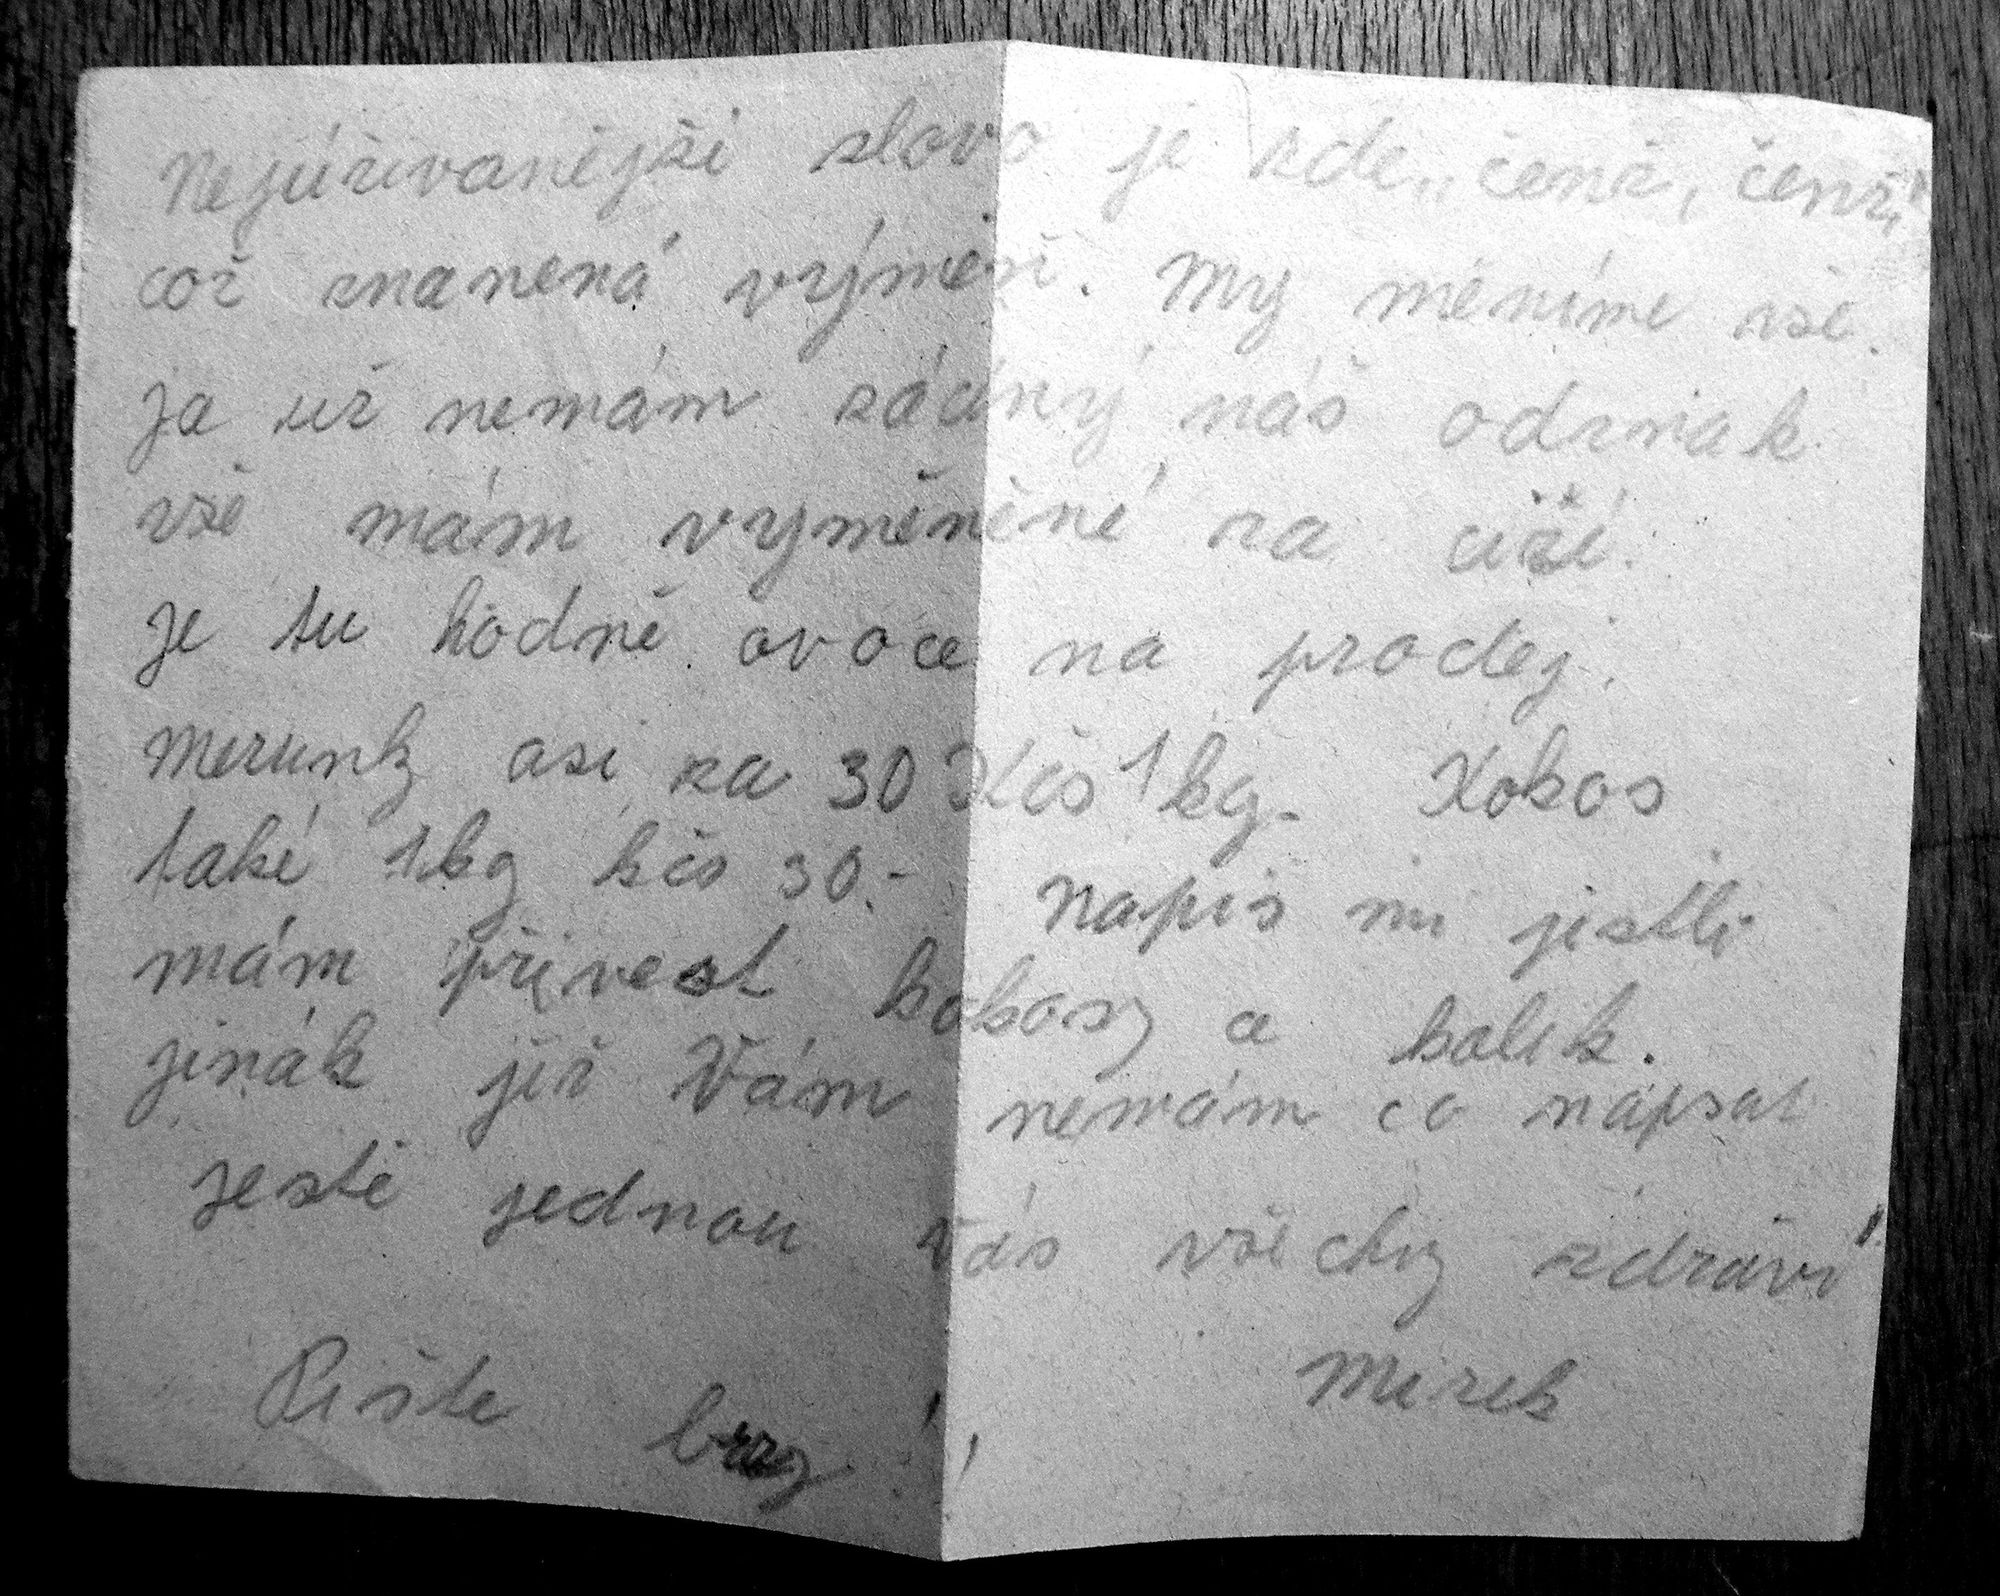 Nejúžívanější slovo je zde „čenč, čenč,"
což znamená výměň. My měníme vše.
ja už nemám žádný náš odznak
vše mám vyměněné za ciží.
je tu hodně ovoce na prodej.
Merunky asi za 30 Kčs 1 kg. Kokos
také 1kg kčs 30.- Napis mi jestli
mám přivest kokosy a kolik.
jinák již Vám nemám co napsat
jestě jednou Vás všechny zdraví
Mirek
Pište brzy!!